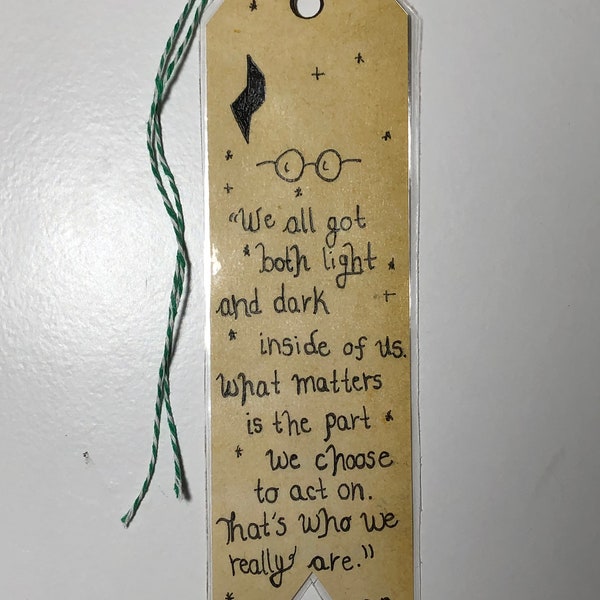 "We all got
both light
and dark
inside of us.
What matters
is the part
we choose
to act on.
That's who we
really are."